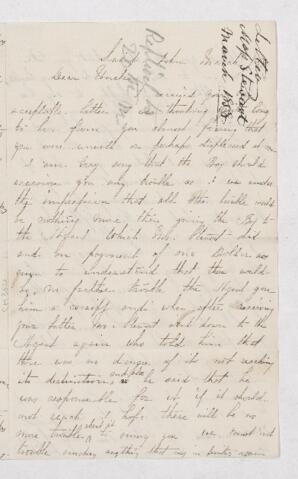 Letter
Mag Stewart
March 1883
Replied to
Saint John March
Dear Uncle
I received your
acceptable letter I was thinking long
to hear from you almost fearing that
you were unwell or perhaps displeased at me
I am very sorry that the Box should
occasion you any trouble as I was under
the impression that all the trouble would
be nothing more than giving the Box to
the Agent which Mr. Stewart did
and on payment of one Dollar was
given to understand that there would
be no further trouble the Agent gave
him a receipt and when after receiving
your letter Mr. Stewart went down to the
Agent again who told him that
there was no danger of it not reaching
its destination and he said that he
was responsible for it if it should
not reach I hope there will be no
more trouble about it to annoy you you must not
trouble sending anything that is in